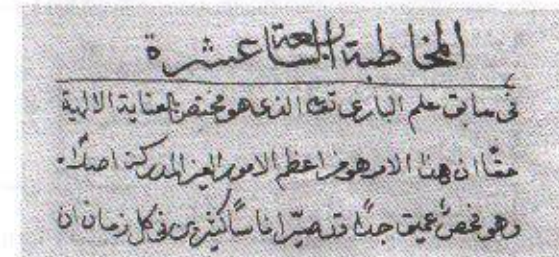 المخاطبة السابعة عشرة
فى سابق علم البارى تعه الذى هو مختص بالعناية الالهية
حقًا ان هذا الامر هو من اعظم الامور الغير المدركة اصلًا.
وهو فحصٌ عميق جدًا قد صيّر اناسًا كثيرين فى كل زمان ان